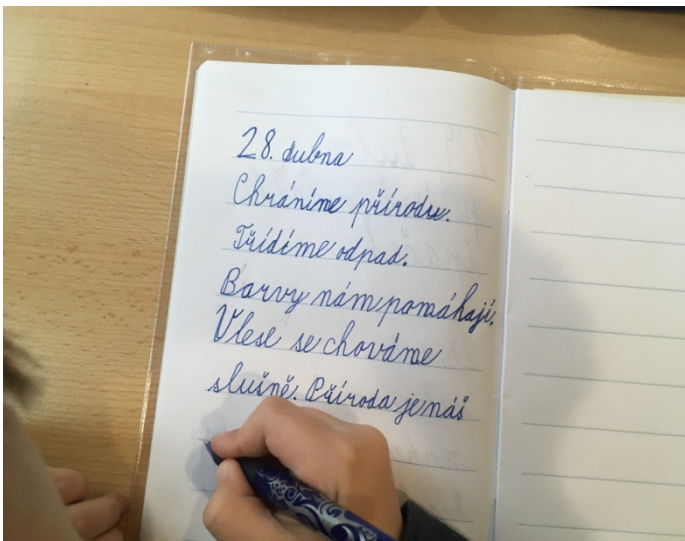 28. dubna
Chráníme přírodu.
Třídíme odpad.
Barvy nám pomáhají.
V lese se chováme
slušně. Příroda je náš